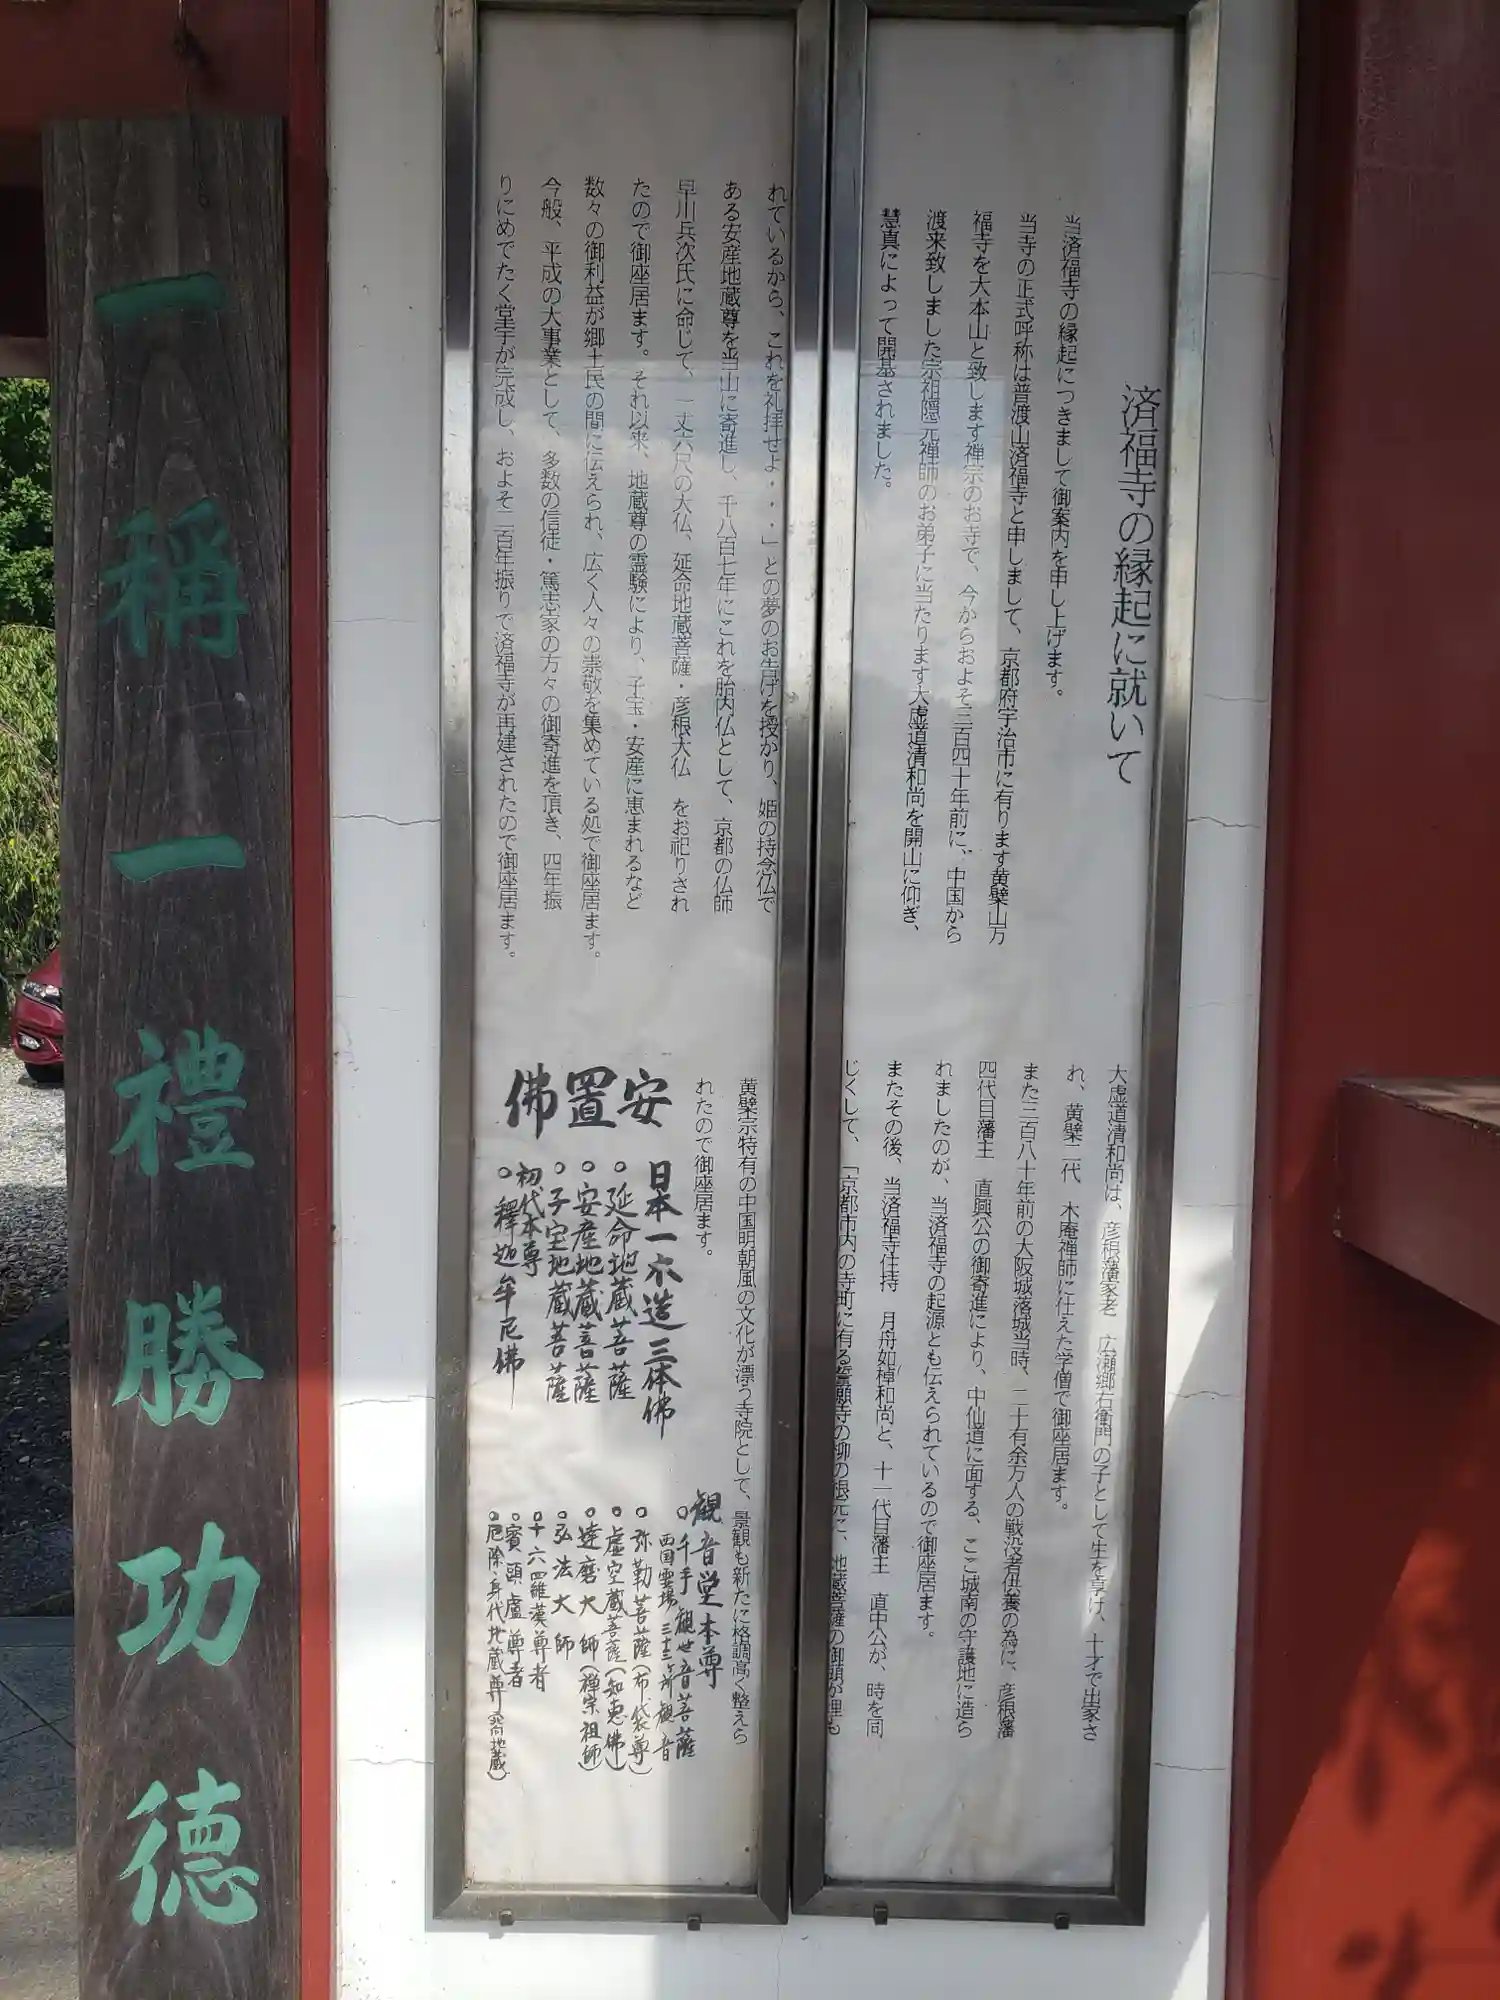 済福寺の縁起に就いて
当済福寺の縁起につきまして御案内を申し上げます。
当寺の正式呼称は普渡山済福寺と申しまして、京都府宇治市に有ります黄檗山万
福寺を大本山と致します禅宗のお寺で、今からおよそ三百四十年前に、中国から
渡来致しました宗祖隠元禅師のお弟子に当たります大虚道清和尚を開山に仰ぎ、
慧真によって開基されました。
大虚道清和尚は、彦根藩家老 広瀬郷右衛門の子として生を享け、十才で出家さ
れ、黄檗二代 木庵禅師に仕えた学僧で御座居ます。
また三百八十年前の大阪城落城当時、二十有余万人の戦没者供養の為に、彦根藩
四代目藩主 直興公の御寄進により、中仙道に面する、ここ城南の守護地に造ら
れましたのが、当済福寺の起源とも伝えられているので御座居ます。
またその後、当済福寺住持 月舟如棹和尚と、十一代目藩主 直中公が、時を同
じくして、「京都市内の寺町に有る誓願寺の柳の根元に、地蔵菩薩の御頭が埋も
れているから、これを礼拝せよ・・・」との夢のお告げを授かり、姫の持念仏で
ある安産地蔵尊を当山に寄進し、千八百七年にこれを胎内仏として、京都の仏師
早川兵次氏に命じて、一丈六尺の大仏、延命地蔵菩薩・彦根大仏 をお祀りされ
たので御座居ます。それ以来、地蔵尊の霊験により、子宝・安産に恵まれるなど
数々の御利益が郷土民の間に伝えられ、広く人々の崇敬を集めている処で御座居ます。
今般、平成の大事業として、多数の信徒・篤志家の方々の御寄進を頂き、四年振
りにめでたく堂宇が完成し、およそ二百年振りで済福寺が再建されたので御座居ます。
黄檗宗特有の中国明朝風の文化が漂う寺院として、景観も新たに格調高く整えら
れたので御座居ます。
安置佛
日本一木造三体佛
○延命地蔵菩薩
○安産地蔵菩薩
○子宝地蔵菩薩
初代本尊
○釋迦牟尼佛
観音堂本尊
○千手観世音菩薩
西国霊場三十三ヶ所観音
○弥勒菩薩(布袋尊)
○虚空蔵菩薩(知恵佛)
○達磨大師(禅宗祖師)
○弘法大師
○十六羅漢尊者
○賓頭盧尊者
○厄除・身代地蔵尊
一稱一禮勝功德